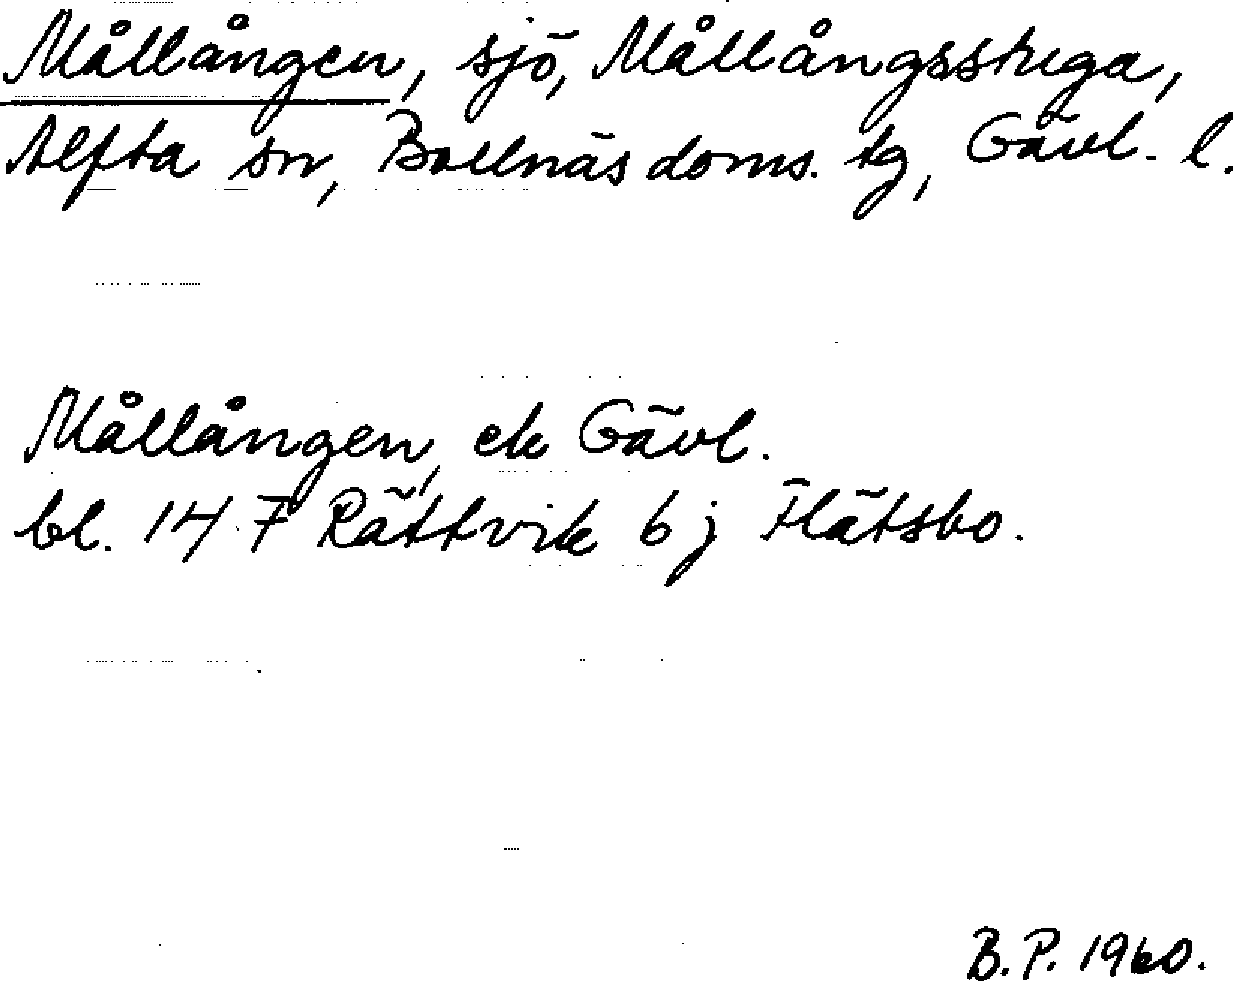 Mållången, sjö, Mållångsstuga,
Alfta sn, Bollnäs doms. tg, Gävl. l.
Mållången, ek Gävl.
bl. 147 Rättvik 6 j Flätsbo.
B.P. 1960.